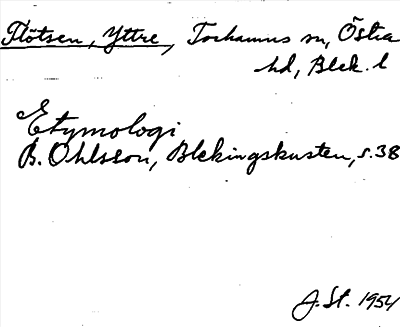 Flötsen, Yttre, Torhamns sn, Östra
hd, Blek. l
Etymologi
B. Ohlsson, Blekingskusten, s. 38
J. St. 1954